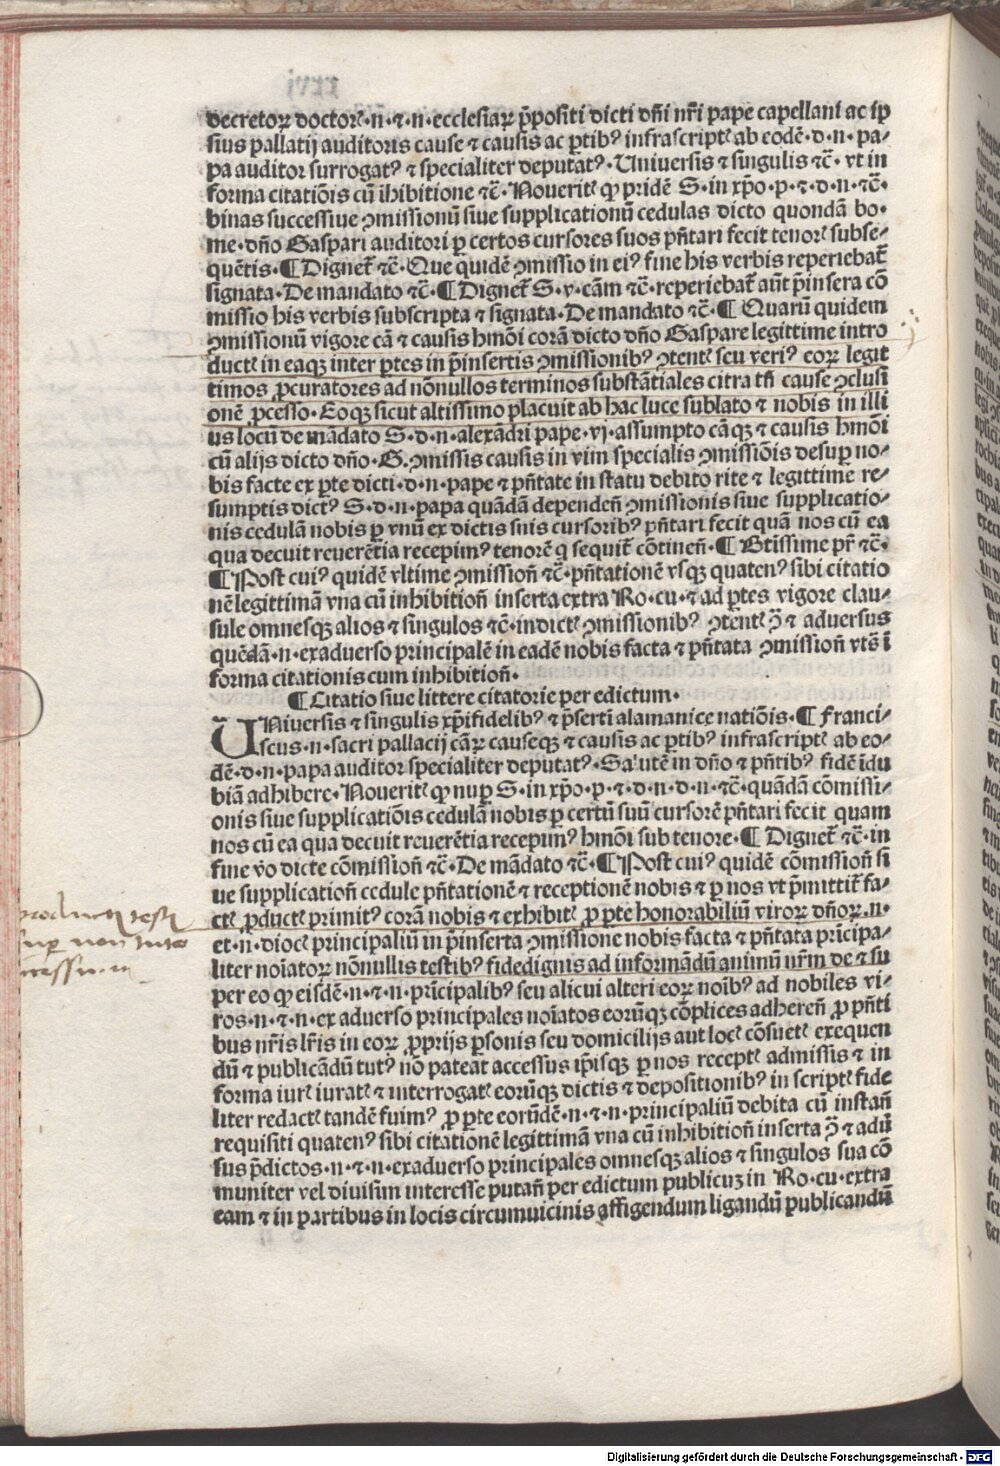 decretoꝝ doctorꝭ·n·⁊·n·ecclesiaꝝ p̄positi dicti dn̄i nr̄i pape capellani ac ip
sius pallatij auditoris cause ⁊ causis ac ꝑtibꝰ infrascriptꝭ ab eodē·d·n·pa⸗
pa auditor surrogatꝰ ⁊ specialiter deputatꝰ·Uniuersis ⁊ singulis ⁊c̄·vt in
forma citatiōis cū īhibitione ⁊c̄·Noueritꝭ ꝙ pridē S·in xp̄o·p·⁊·d·n·⁊c̄·
binas successiue ꝯmissionū siue supplicationū cedulas dicto quondā bo·
me·dn̄o Gaspari auditori ꝑ certos cursores suos pn̄tari fecit tenorꝭ subse⸗
quētis·¶Dignet̄ ⁊c̄·Que quidē ꝯmissio in eiꝰ fine his verbis reperiebat̄
signata·De mandato ⁊c̄·¶Dignet̄ S·v·cām ⁊c̄·reperiebat̄ aūt p̄insera cō
missio his verbis subscripta ⁊ signata·De mandato ⁊c̄·¶Quarū quidem
ꝯmissionū vigore cā ⁊ causis hmōi corā dicto dn̄o Gaspare legittime intro
ductꝭ in eaqꝫ inter ꝑtes in p̄insertis ꝯmissionibꝰ ꝯtentꝭ seu veriꝰ eoꝝ legit
timos ꝓcuratores ad nōnullos terminos substātiales citra tn̄ cause ꝯclusi
onē ꝓcesso·Eoqꝫ sicut altissimo placuit ab hac luce sublato ⁊ nobis in illi
us locū de mādato S·d·n·alexādri pape·vj·assumpto cāqꝫ ⁊ causis hmōi
cū alijs dicto dn̄o·G·ꝯmissis causis in vim specialis ꝯmissiōis desuꝑ no⸗
bis facte ex ꝑte dicti·d·n·pape ⁊ pn̄tate in statu debito rite ⁊ legittime re⸗
sumptis dictꝰ S·d·n·papa quādā dependen̄ ꝯmissionis siue supplicatio⸗
nis cedulā nobis ꝑ vnū ex dictis suis cursoribꝰ pn̄tari fecit quā nos cū ea
qua decuit reuerētia recepimꝰ tenorē q̄ sequit̄ cōtinen̄·¶Btīssime pr̄ ⁊c̄·
¶Post cuiꝰ quidē vltime ꝯmission̄ ⁊c̄·pn̄tationē vsqꝫ quatenꝰ sibi citatio
nē legittimā vna cū inhibition̄ inserta extra Ro·cu·⁊ ad ꝑtes vigore clau⸗
sule omnesqꝫ alios ⁊ singulos ⁊c̄·in dictꝭ ꝯmissionibꝰ ꝯtentꝭ ꝯ̄ ⁊ aduersus
quēdā·n·exaduerso principalē in eadē nobis facta ⁊ pn̄tata ꝯmission̄ vts̄ ī
forma citationis cum inhibition̄·
¶Citatio siue littere citatorie per edictum·
UNiuersis ⁊ singulis xp̄ifidelibꝰ ⁊ p̄serti alamanice natiōis·¶Franci⸗
scus·n·sacri pallacij cāꝝ causeqꝫ ⁊ causis ac ꝑtibꝰ infrascriptꝭ ab eo⸗
dē·d·n·papa auditor specialiter deputatꝰ·Salutē in dn̄o ⁊ pn̄tibꝰ fidē īdu
biā adhibere·Noueritꝭ ꝙ nuꝑ S·in xp̄o·p·⁊·d·n·d·n·⁊c̄·quādā cōmissi⸗
onis siue supplicatiōis cedulā nobis ꝑ certū suū cursorē pn̄tari fecit quam
nos cū ea qua decuit reuerētia recepimꝰ hmōi sub tenore·¶Dignet̄ ⁊c̄·in
fine vo dicte cōmission̄ ⁊c̄·De mādato ⁊c̄·¶Post cuiꝰ quidē cōmission̄ si
ue supplication̄ cedule pn̄tationē ⁊ receptionē nobis ⁊ ꝑ nos vt p̄mittit̄ fa⸗
ctꝭ ꝓductꝭ primitꝰ corā nobis ⁊ exhibitꝭ ꝓ ꝑte honorabiliū viroꝝ dn̄oꝝ·n·
et·n·diocꝭ principaliū in p̄inserta ꝯmissione nobis facta ⁊ pn̄tata prīcipa⸗
liter noīatoꝝ nōnullis testibꝰ fidedignis ad informādū animū nr̄m de ⁊ su
per eo ꝙ eisdē·n·⁊·n·prīcipalibꝰ seu alicui alteri eoꝝ noībꝰ ad nobiles vi⸗
ros·n·⁊·n·ex aduerso principales noīatos eorūqꝫ cōplices adheren̄ ꝓ pn̄ti
bus nr̄is lr̄is in eoꝝ ꝓprijs ꝑsonis seu domicilijs aut locꝭ cōsuetꝭ exequen
dū ⁊ publicādū tutꝰ nō pateat accessus ip̄isqꝫ ꝑ nos receptꝭ admissis ⁊ in
forma iurꝭ iuratꝭ ⁊ interrogatꝭ eorūqꝫ dictis ⁊ depositionibꝰ in scriptꝭ fide
liter redactꝭ tandē fuimꝰ ꝓ ꝑte eorūdē·n·⁊·n·principaliū debita cū instan̄
requisiti quatenꝰ sibi citationē legittimā vna cū inhibition̄ inserta ꝯ̄ ⁊ adū
sus p̄dictos·n·⁊·n·exaduerso principales omnesqꝫ alios ⁊ singulos sua cō
muniter vel diuisim interesse putan̄ per edictum publicuꝫ in Ro·cu·extra
eam ⁊ in partibus in locis circumuicinis affigendum ligandū publicandū
Digitalisierung gefördert durch die Deutsche Forschungsgemeinschaft · DFG